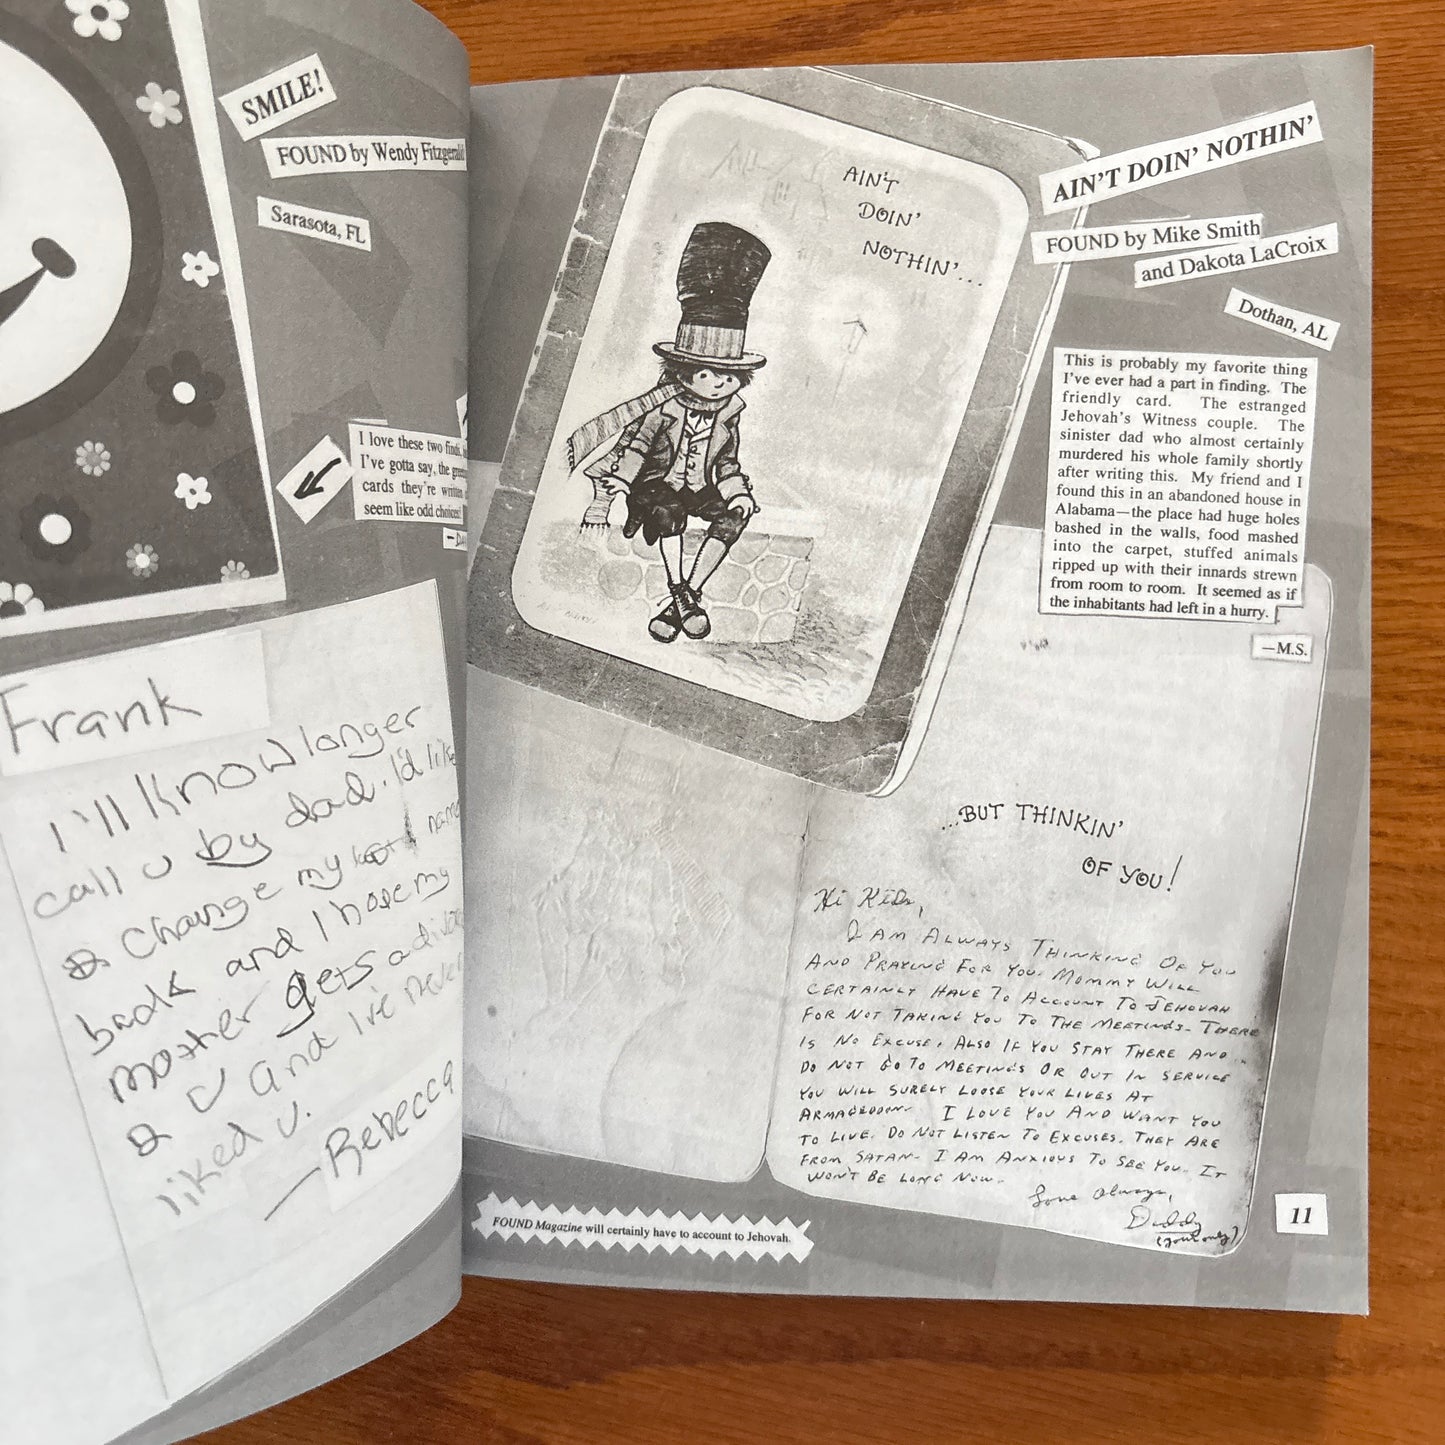 SMILE!
FOUND by Wendy Fitzgerald
Sarasota, FL
I love these two finds,
I've gotta say, the
cards they're written
seem like odd choices!
Frank
I'll Know longer
call u by dad. I'd like
change my last name
back and I hope my
mother gets a
u and I've never
liked u.
—Rebecca
AIN'T
DOIN'
NOTHIN'...
AIN'T DOIN' NOTHIN'
FOUND by Mike Smith
and Dakota LaCroix
Dothan, AL
This is probably my favorite thing
I've ever had a part in finding. The
friendly card. The estranged
Jehovah's Witness couple. The
sinister dad who almost certainly
murdered his whole family shortly
after writing this. My friend and I
found this in an abandoned house in
Alabama—the place had huge holes
bashed in the walls, food mashed
into the carpet, stuffed animals
ripped up with their innards strewn
from room to room. It seemed as if
the inhabitants had left in a hurry.
—M.S.
...BUT THINKIN'
OF YOU!
Hi Kids,
I AM ALWAYS THINKING OF YOU
AND PRAYING FOR YOU. MOMMY WILL
CERTAINLY HAVE TO ACCOUNT TO JEHOVAH
FOR NOT TAKING YOU TO THE MEETINGS. THERE
IS NO EXCUSE. ALSO IF YOU STAY THERE AND
DO NOT GO TO MEETINGS OR OUT IN SERVICE
YOU WILL SURELY LOOSE YOUR LIVES AT
ARMAGEDDON. I LOVE YOU AND WANT YOU
TO LIVE. DO NOT LISTEN TO EXCUSES. THEY ARE
FROM SATAN. I AM ANXIOUS TO SEE YOU. IT
WON'T BE LONG NOW.
Love always,
Daddy
(your only)
FOUND Magazine will certainly have to account to Jehovah.
11